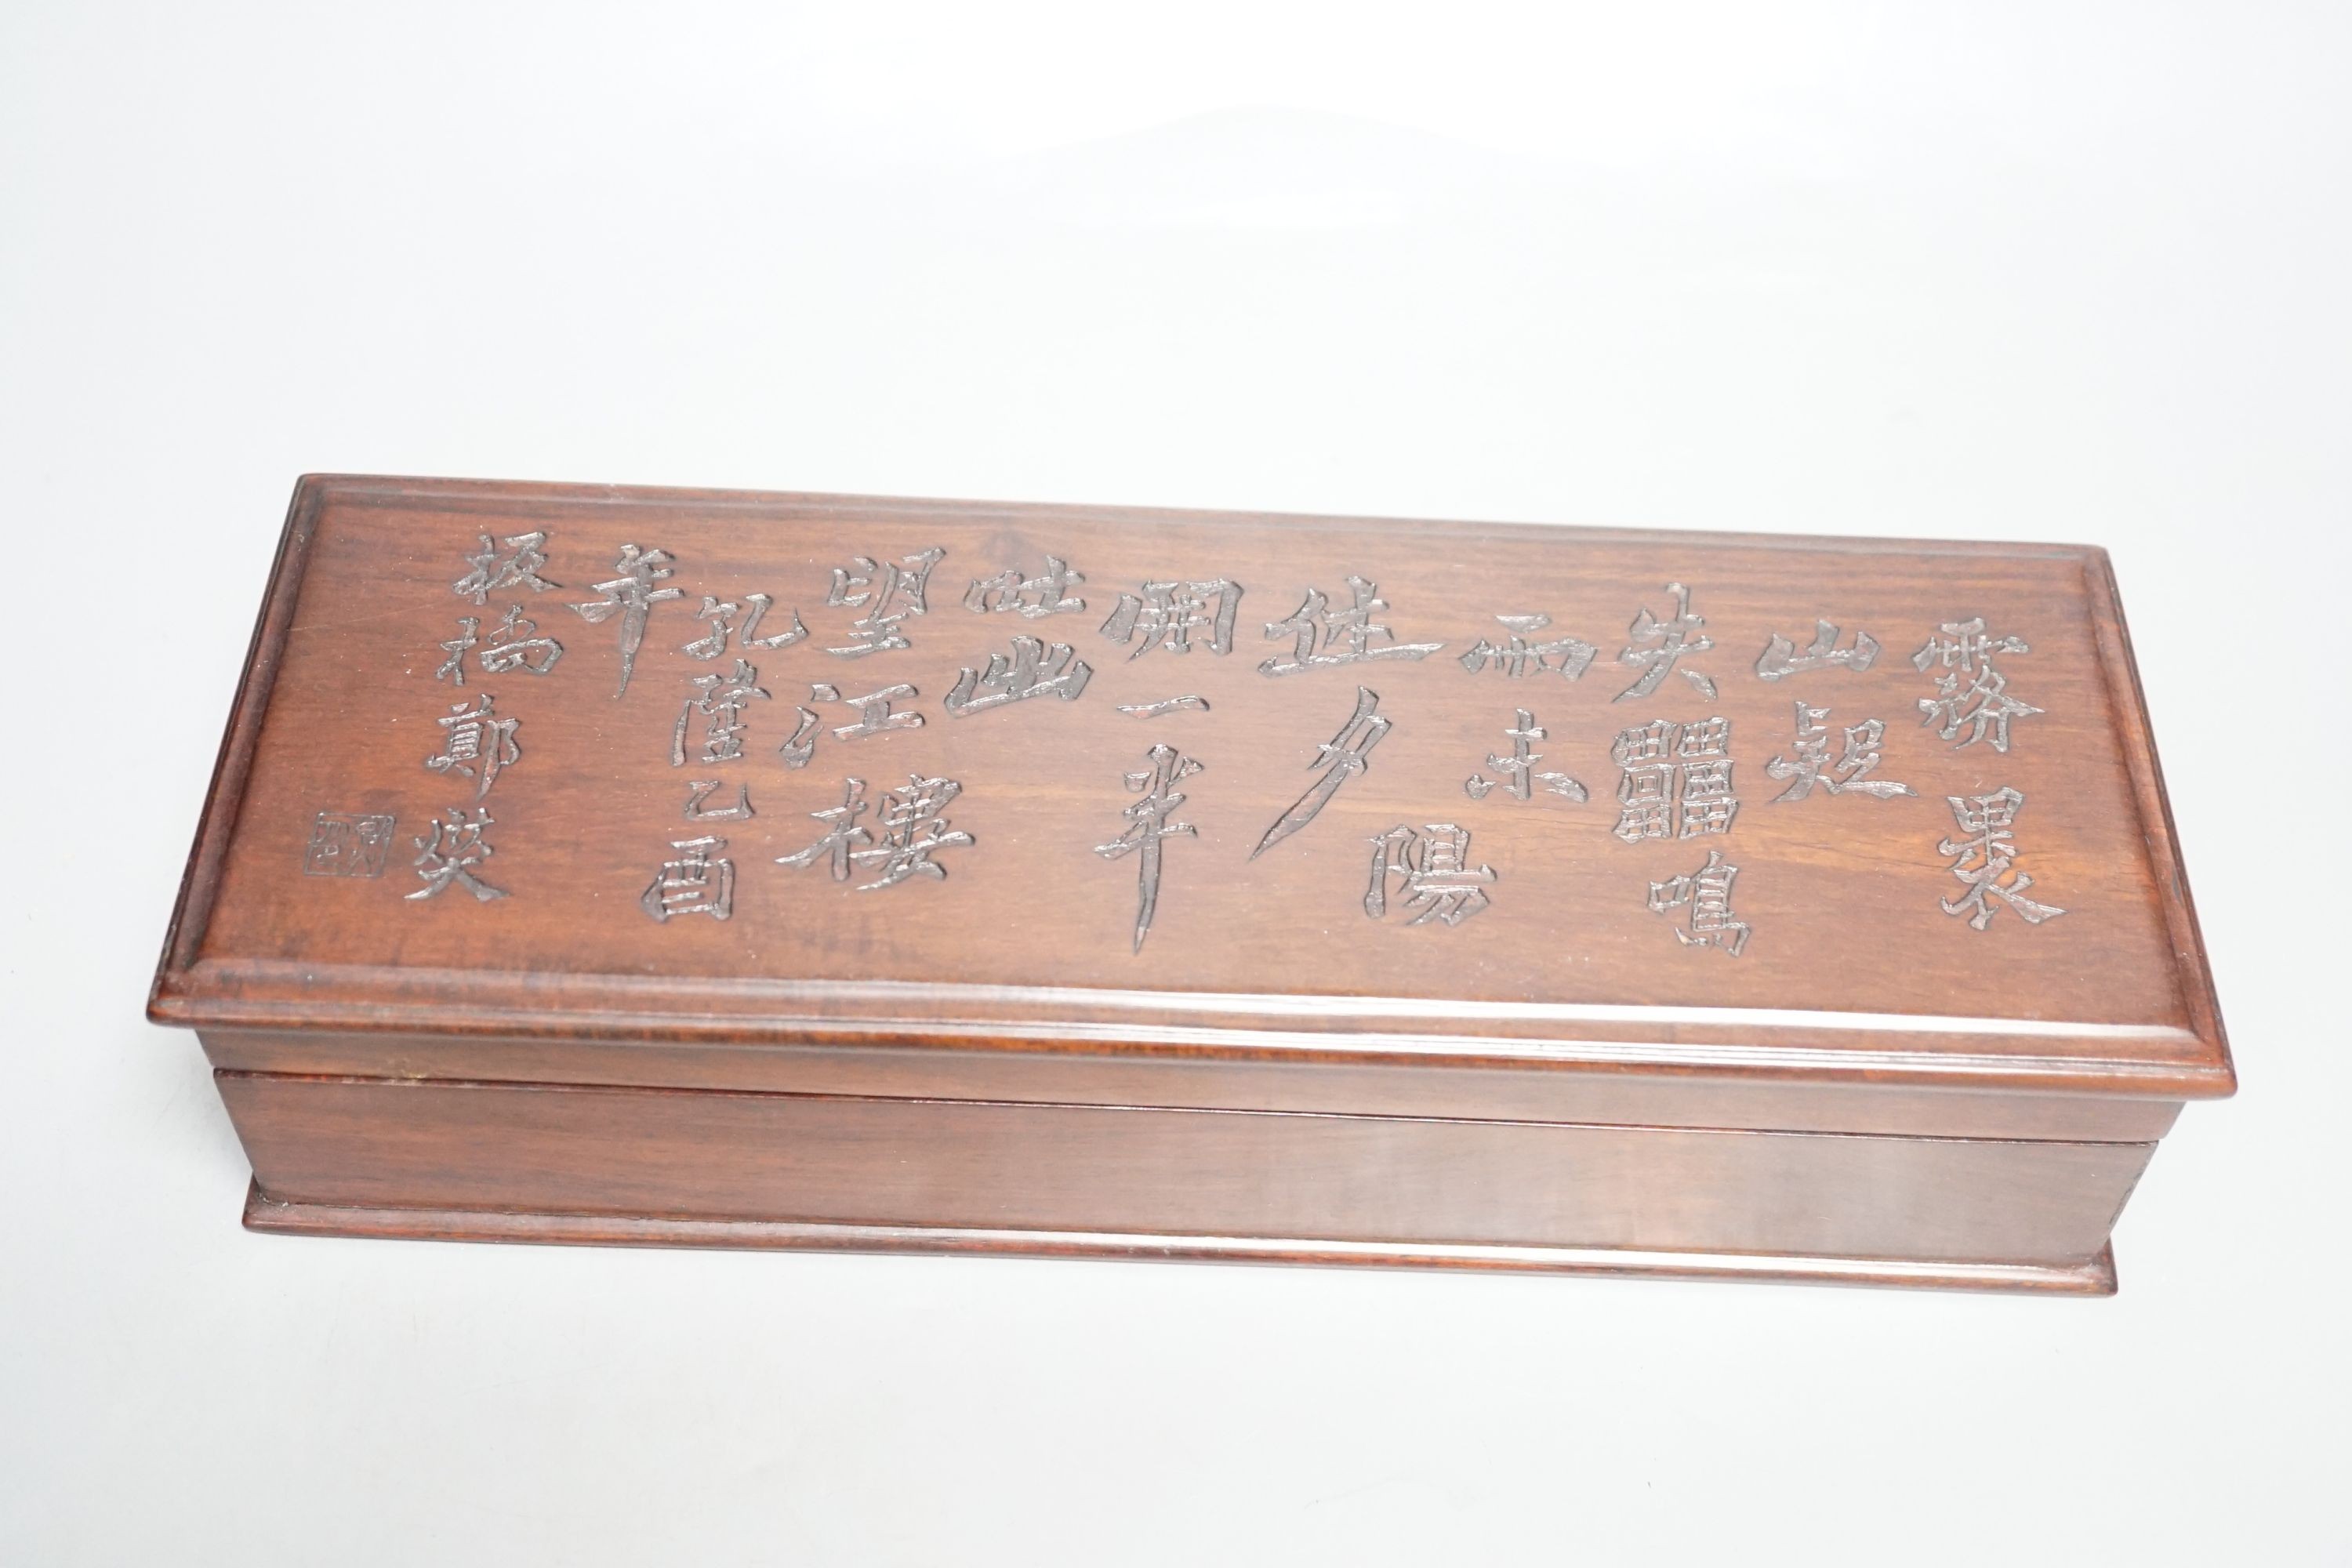 霧裹
山疑
失鳴
雨未
休夕陽
開一半
吐出
望江樓
乾隆乙酉
年
板橋鄭燮